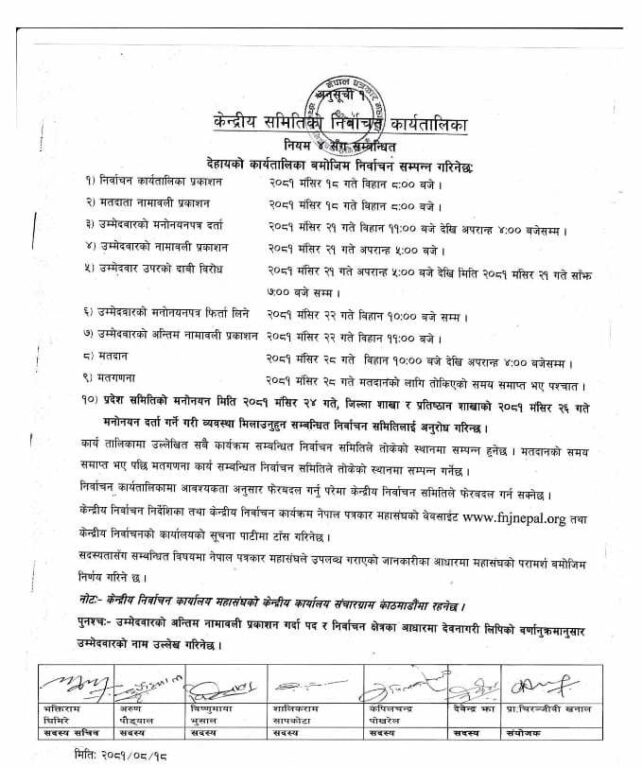 अनुसूची १
केन्द्रीय समितिको निर्वाचन कार्यतालिका
नियम ४ सँग सम्बन्धित
देहायको कार्यतालिका बमोजिम निर्वाचन सम्पन्न गरिनेछः
१) निर्वाचन कार्यतालिका प्रकाशन २०८१ मंसिर १८ गते विहान ८:०० बजे ।
२) मतदाता नामावली प्रकाशन २०८१ मंसिर १८ गते विहान ८:०० बजे ।
३) उम्मेदवारको मनोनयनपत्र दर्ता २०८१ मंसिर २१ गते विहान ११:०० बजे देखि अपरान्ह ४:०० बजेसम्म ।
४) उम्मेदवारको नामावली प्रकाशन २०८१ मंसिर २१ गते अपरान्ह ५:०० बजे ।
५) उम्मेदवार उपरको दावी विरोध २०८१ मंसिर २१ गते अपरान्ह ५:०० बजे देखि मिति २०८१ मंसिर २१ गते साँझ
७:०० बजे सम्म ।
६) उम्मेदवारको मनोनयनपत्र फिर्ता लिने २०८१ मंसिर २२ गते विहान १०:०० बजे सम्म ।
७) उम्मेदवारको अन्तिम नामावली प्रकाशन २०८१ मंसिर २२ गते विहान ११:०० बजे ।
८) मतदान २०८१ मंसिर २८ गते विहान १०:०० बजे देखि अपरान्ह ४:०० बजेसम्म ।
९) मतगणना २०८१ मंसिर २८ गते मतदानको लागि तोकिएको समय समाप्त भए पश्चात ।
१०) प्रदेश समितिको मनोनयन मिति २०८१ मंसिर २४ गते, जिल्ला शाखा र प्रतिष्ठान शाखाको २०८१ मंसिर २६ गते
मनोनयन दर्ता गर्ने गरी व्यवस्था मिलाउनुहुन सम्बन्धित निर्वाचन समितिलाई अनुरोध गरिन्छ ।
कार्य तालिकामा उल्लेखित सबै कार्यक्रम सम्बन्धित निर्वाचन समितिले तोकेको स्थानमा सम्पन्न हुनेछ । मतदानको समय
समाप्त भए पछि मतगणना कार्य सम्बन्धित निर्वाचन समितिले तोकेको स्थानमा सम्पन्न गर्नेछ ।
निर्वाचन कार्यतालिकामा आवश्यकता अनुसार फेरबदल गर्नु परेमा केन्द्रीय निर्वाचन समितिले फेरबदल गर्न सक्नेछ ।
केन्द्रीय निर्वाचन निर्देशिका तथा केन्द्रीय निर्वाचन कार्यक्रम नेपाल पत्रकार महासंघको वेवसाईट www.fnjnepal.org तथा
केन्द्रीय निर्वाचनको कार्यालयको सूचना पाटीमा टाँस गरिनेछ ।
सदस्यतासंग सम्बन्धित विषयमा नेपाल पत्रकार महासंघले उपलब्ध गराएको जानकारीका आधारमा महासंघको परामर्श बमोजिम
निर्णय गरिने छ ।
नोटः- केन्द्रीय निर्वाचन कार्यालय महासंघको केन्द्रीय कार्यालय संचारग्राम काठमाडौंमा रहनेछ ।
पुनश्चः- उम्मेदवारको अन्तिम नामावली प्रकाशन गर्दा पद र निर्वाचन क्षेत्रका आधारमा देवनागरी लिपिको वर्णानुक्रमानुसार
उम्मेदवारको नाम उल्लेख गरिनेछ ।
भक्तिराम अरुण विष्णुमाया शालिकराम कपिलचन्द्र देवेन्द्र झा प्रा.चिरञ्जीवी खनाल
घिमिरे पौड्याल भुसाल सापकोटा पोखरेल
सदस्य सचिव सदस्य सदस्य सदस्य सदस्य सदस्य संयोजक
मितिः २०८१/०८/१८